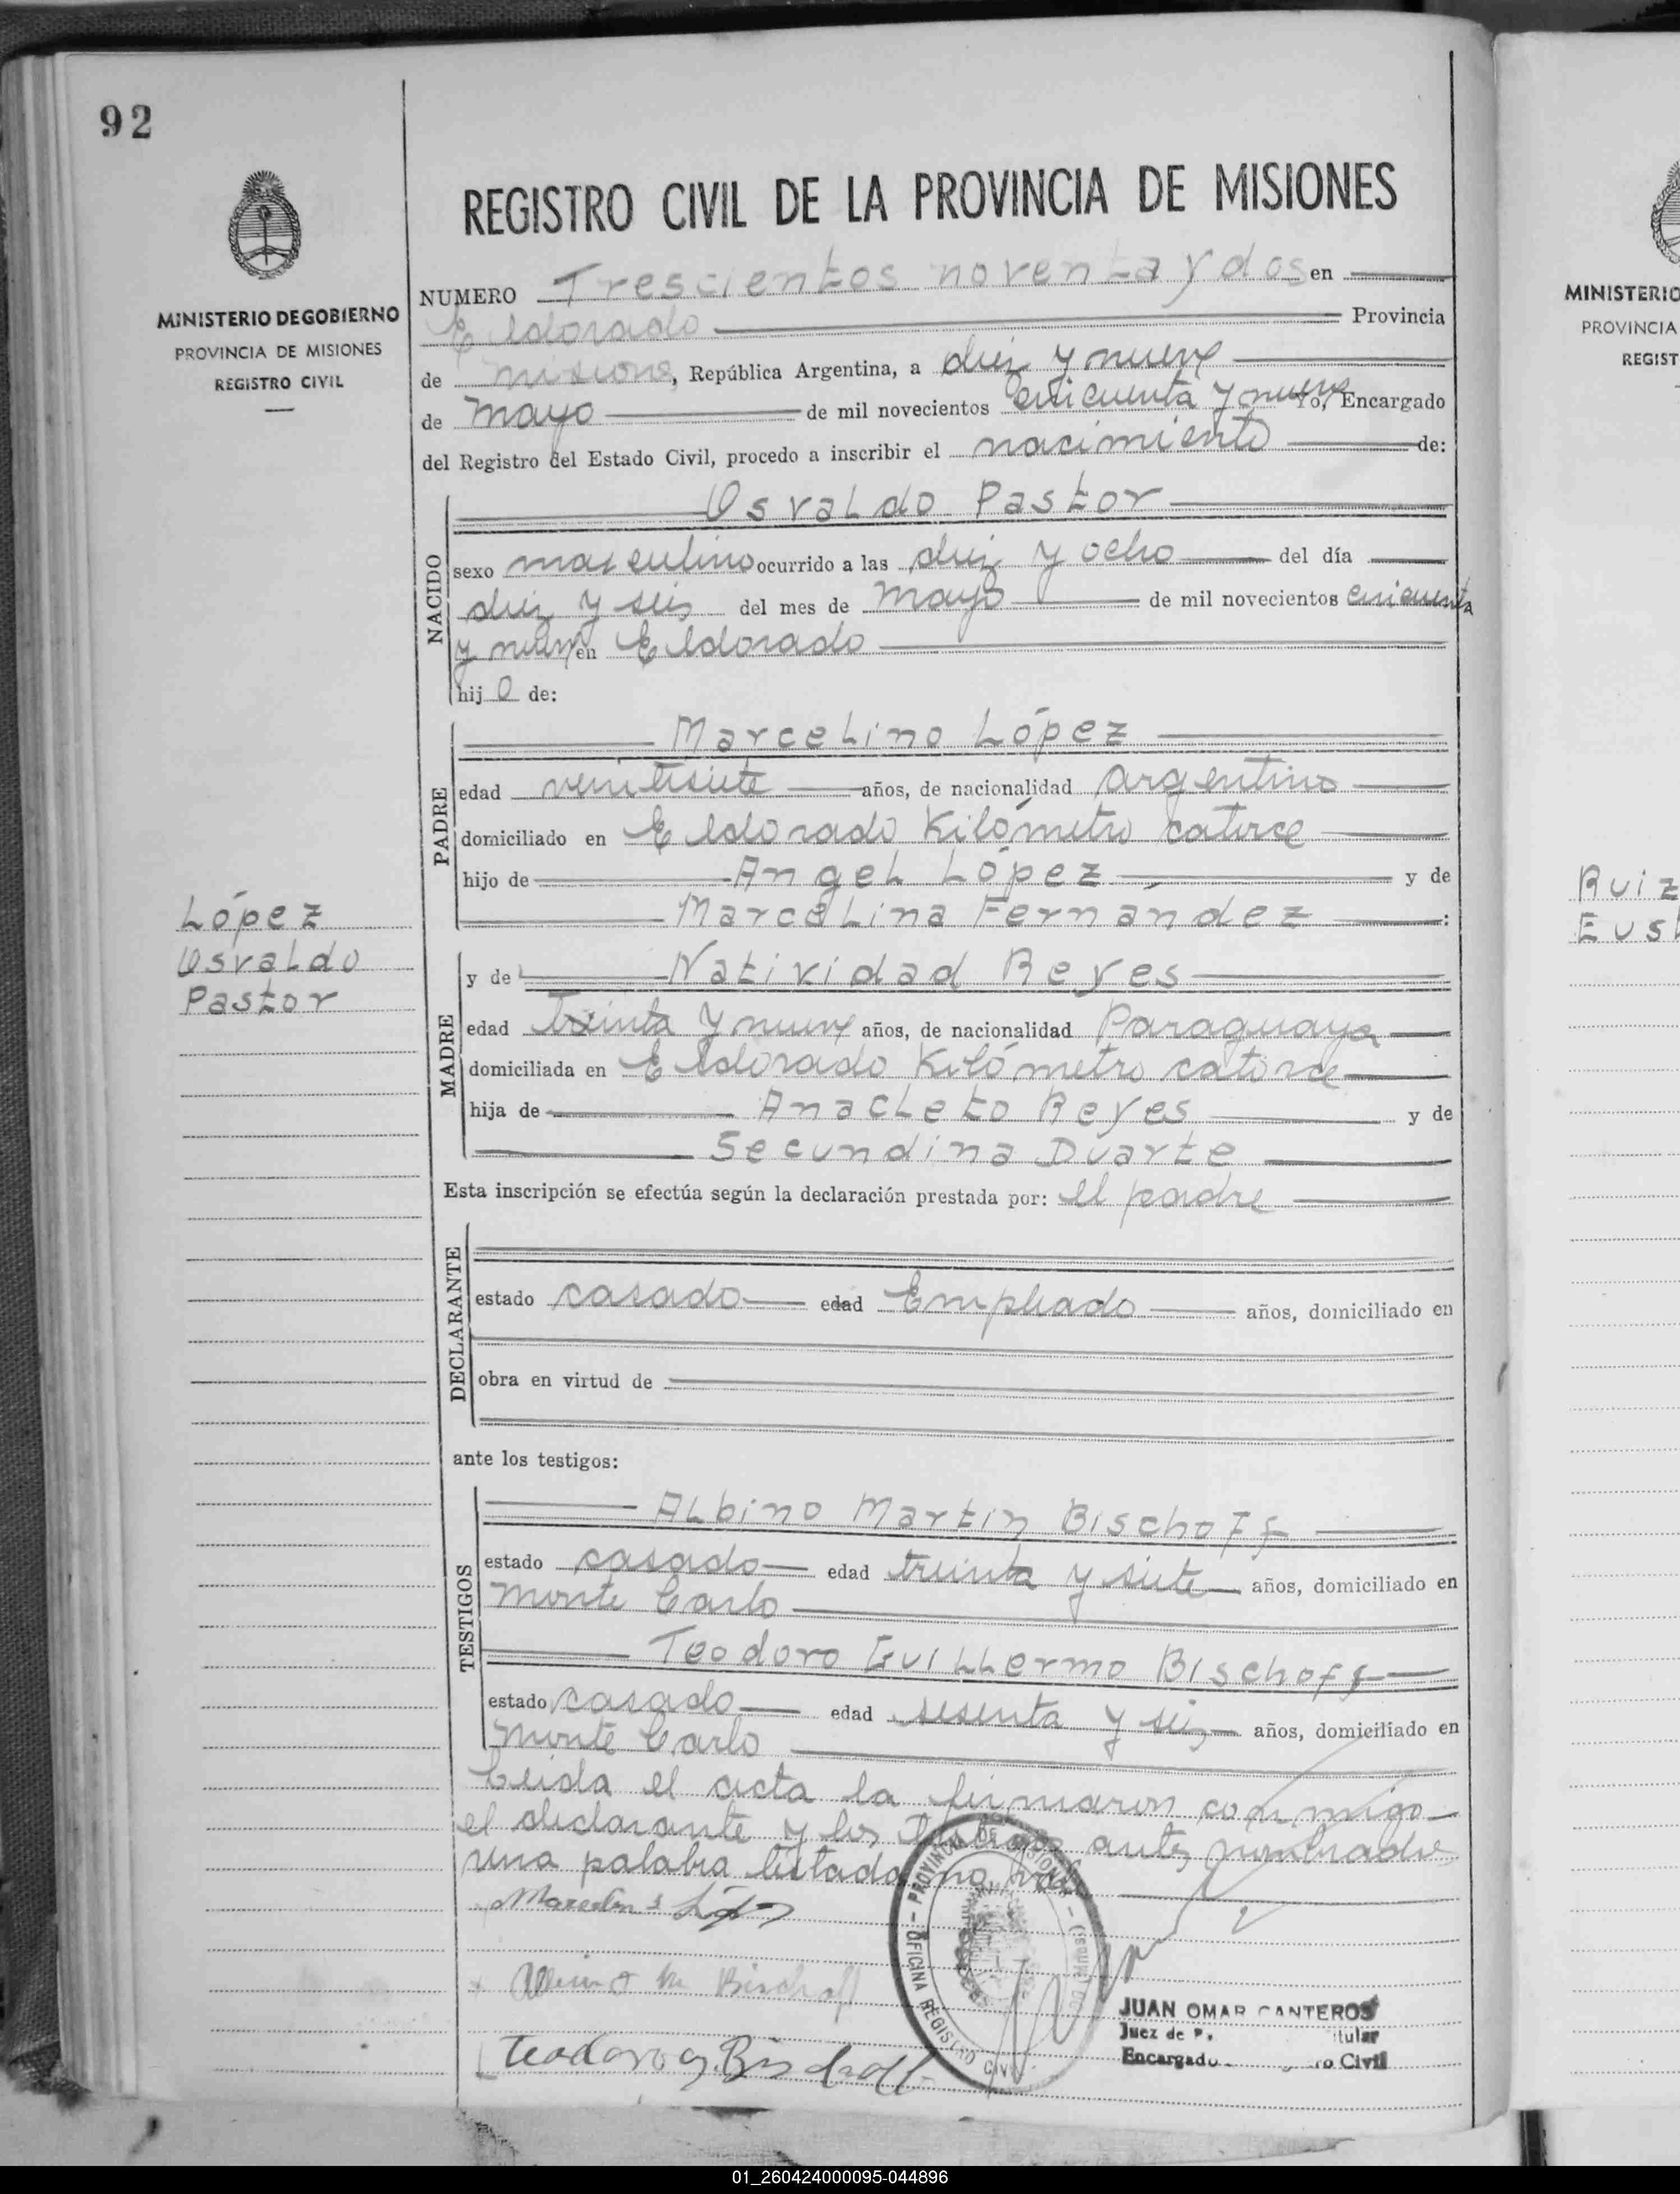 92
MINISTERIO DE GOBIERNO
PROVINCIA DE MISIONES
REGISTRO CIVIL
REGISTRO CIVIL DE LA PROVINCIA DE MISIONES
NUMERO Trescientos noventa y dos en
Eldorado Provincia
de Misiones, República Argentina, a diez y nueve
de Mayo de mil novecientos cincuenta y nueve Yo, Encargado
del Registro del Estado Civil, procedo a inscribir el nacimiento de:
NACIDO
Osvaldo Pastor
sexo masculino ocurrido a las diez y ocho del día
diez y seis del mes de Mayo de mil novecientos cincuenta
y nueve en Eldorado
hijo de:
PADRE
Marcelino López
edad veintisiete años, de nacionalidad argentino
domiciliado en Eldorado Kilómetro catorce
hijo de Angel López y de
Marcelina Fernández :
López
Osvaldo
Pastor
MADRE
y de Natividad Reyes
edad treinta y nueve años, de nacionalidad Paraguaya
domiciliada en Eldorado Kilómetro catorce
hija de Anacleto Reyes y de
Secundina Duarte
Esta inscripción se efectúa según la declaración prestada por: el padre
DECLARANTE
estado casado edad Empleado años, domiciliado en
obra en virtud de
ante los testigos:
TESTIGOS
Albino Martin Bischoff
estado casado edad treinta y siete años, domiciliado en
Monte Carlo
Teodoro Guillermo Bischoff
estado casado edad sesenta y seis años, domiciliado en
Monte Carlo
Leida el acta la firmaron conmigo
el declarante y los testigos antes nombrados
una palabra testada no vale
Marcelino López
Albino M Bischoff
Teodoro G. Bischoff
PROVINCIA DE MISIONES - OFICINA REGISTRO CIVIL
JUAN OMAR CANTEROS
Juez de P. itular
Encargado o Civil
MINISTERIO
PROVINCIA
REGIST
Ruiz
Eus
01_260424000095-044896